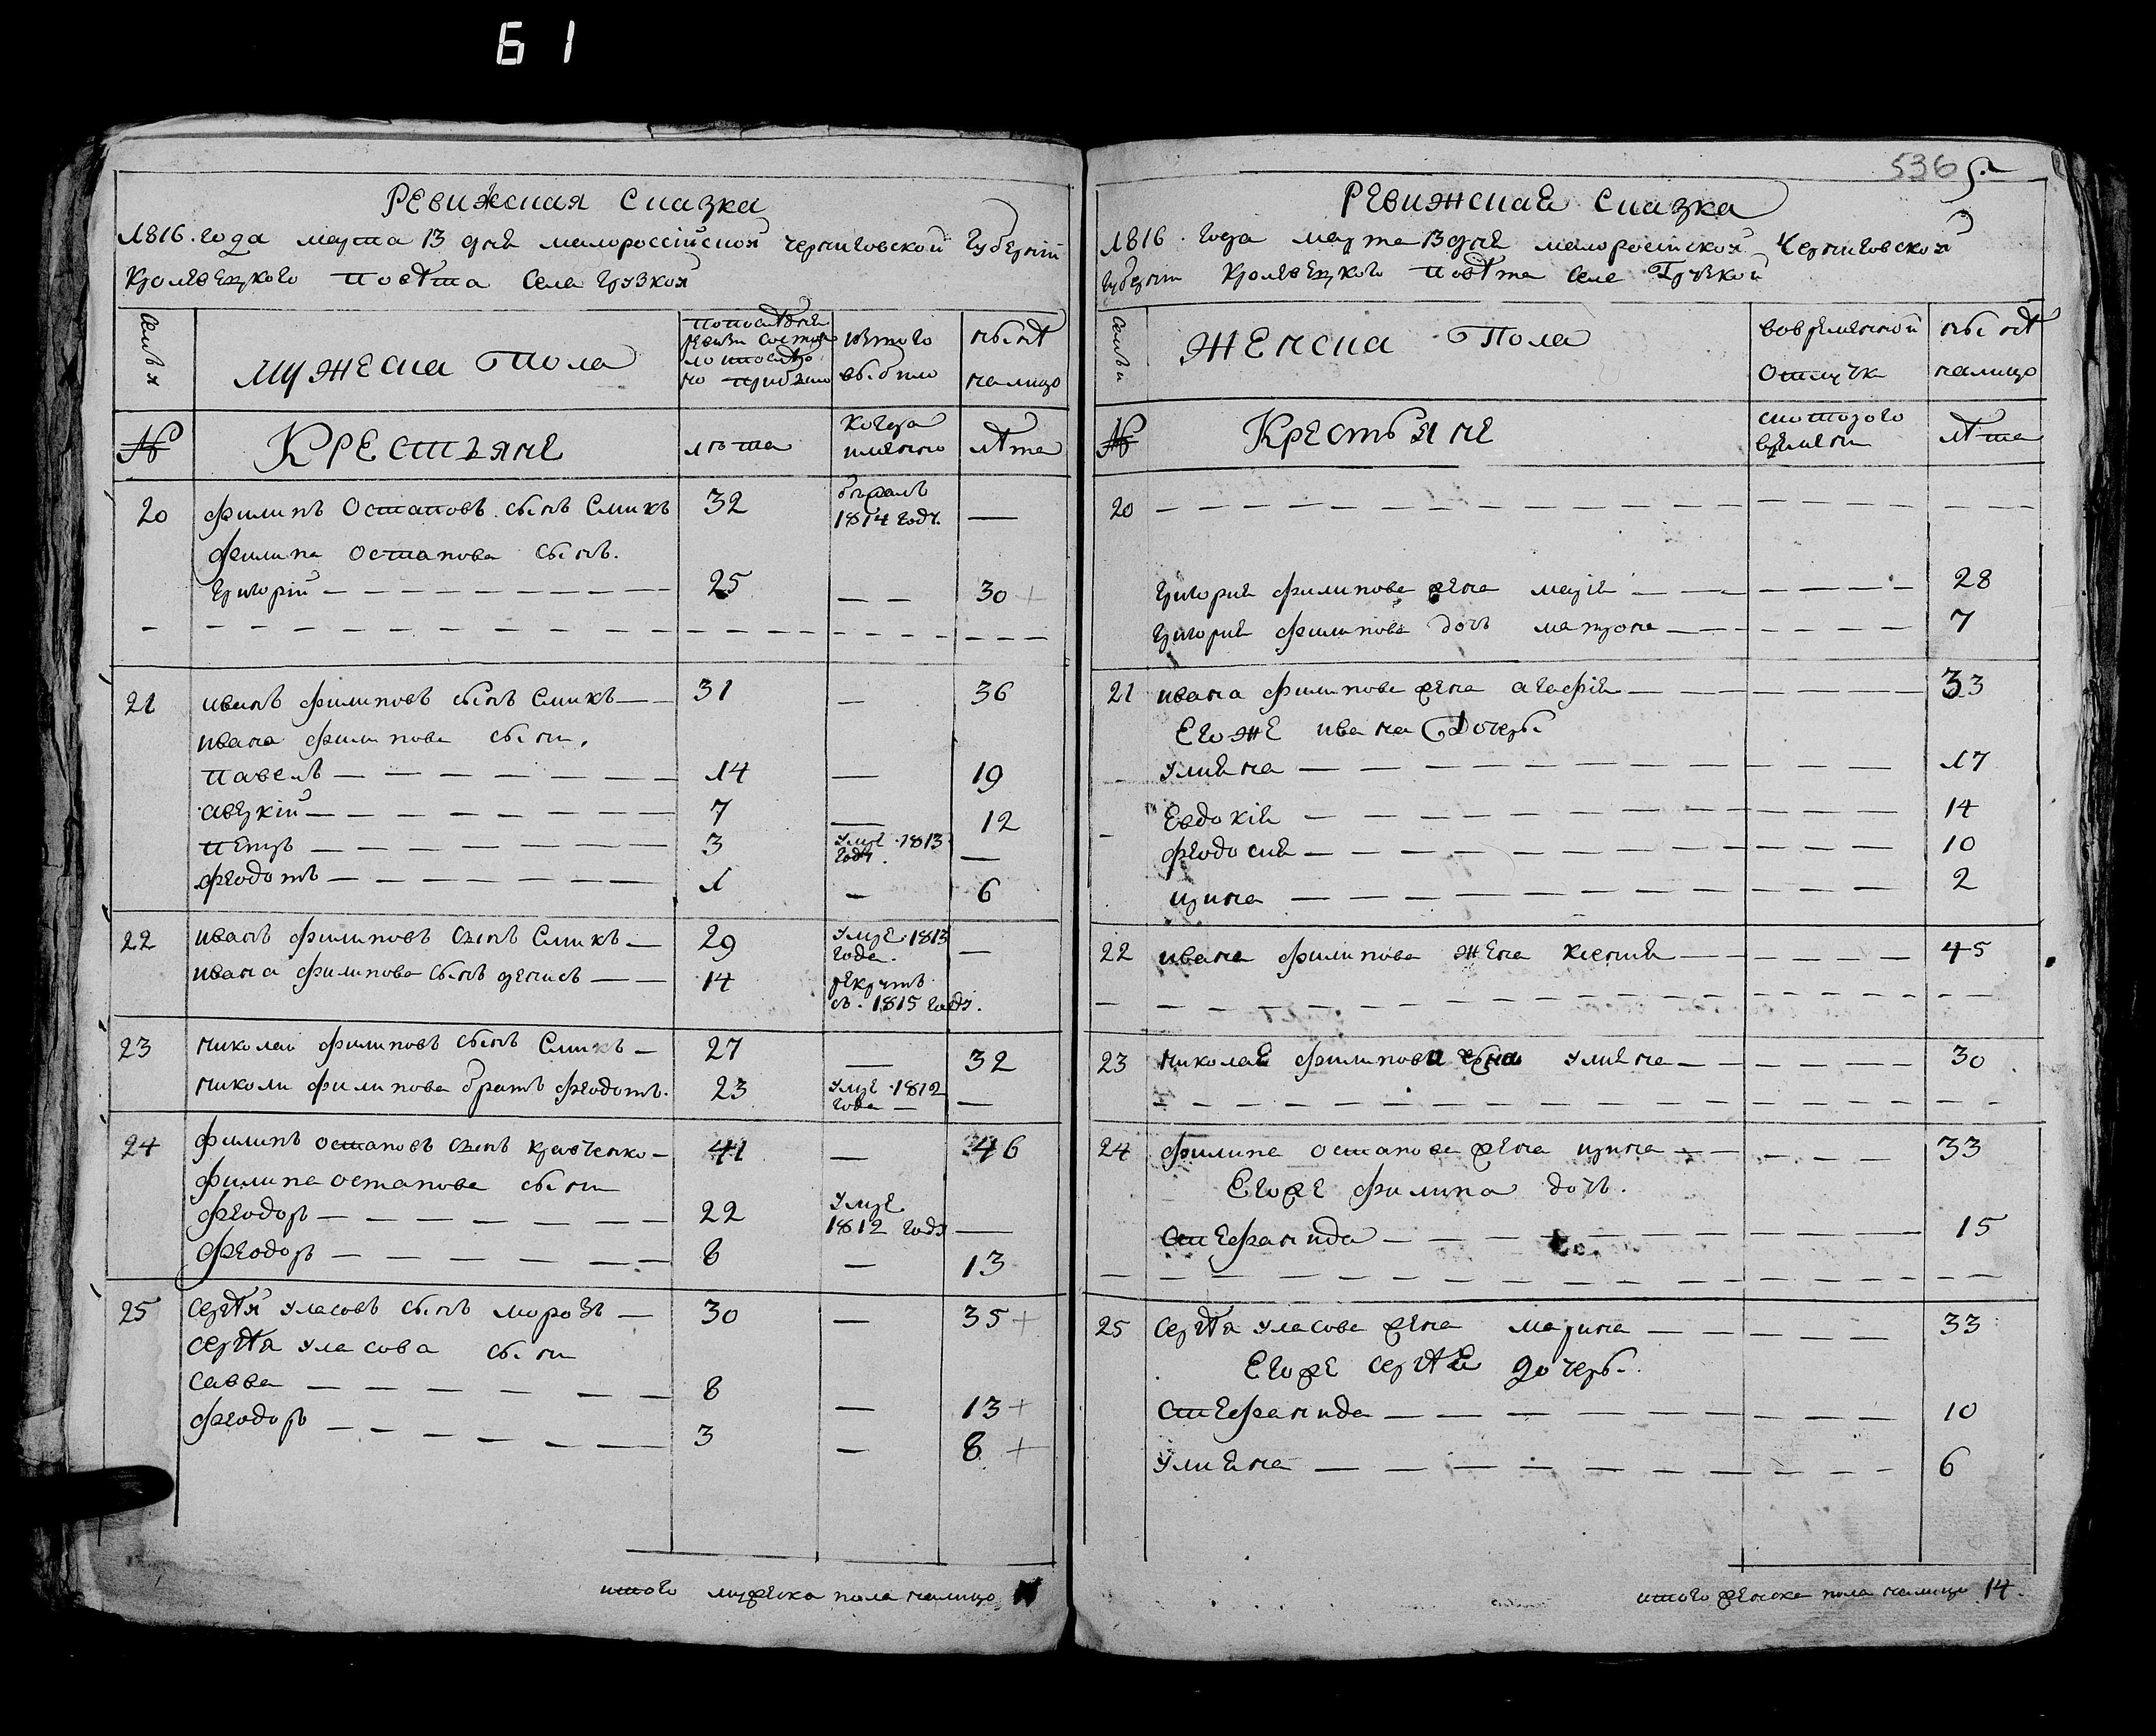 61
Ревижская Сказка
1816. года марта 13 дня малороссійской черниговской Губерніи
Кролевецкого повѣта села грузкой
Семья
мужеска Пола
по последней ревизи состояло и после того прибыло
изтого выбыло
нынѣ налицо
№
Крестьяне
лѣта
когда именно
лѣта
20 филипъ Остаповъ сынъ Сликъ 32 1814 году —
филипа остапова сынъ.
григорій 25 — — 30 +
21 иванъ филиповъ сынъ Сликъ 31 — 36
ивана филипова сыни,
павелъ 14 — 19
аверкій 7 — 12
петръ 3 умре 1813 году. —
феодотъ 1 — 6
22 иванъ филиповъ сынъ Сликъ 29 умре 1813 года. —
ивана филипова сынъ денисъ 14 рекрутъ съ. 1815 году.
23 николай филиповъ сынъ Сликъ 27 — 32
николи филипова братъ феодотъ. 23 умре 1812 года —
24 филипъ остаповъ сынъ кравченко 41 — 46
филипа остапова сыни
феодоръ 22 умре 1812 году —
феодоръ 8 — 13
25 сергѣй уласовъ сынъ морозъ 30 — 35 +
сергѣя уласова сыни
савва 8 — 13 +
феодоръ 3 — 8 +
итого мужеска пола налицо
536
Ревижская Сказка
1816. года марта 13 дня малоросійской Черниговской
губерніи Кролевецкого повѣта села Грузкой
Семьи
Женска Пола
вовременной отлучки
нынѣ налицо
№
Крестьяне
скотораго времени
лѣта
20
григория филипова жена марія 28
григория филипова дочь матрона 7
21 ивана филипова жена агафія 33
Егоже ивана Дочеры
улияна 17
Евдокія 14
феодосия 10
ирина 2
22 ивана филипова жена ксения 45
23 николая филипова жена улияна 30
24 филипа остапова жена ирина 33
Егоже филипа дочь.
стефанида 15
25 сергѣя уласова жена марина 33
Егоже сергѣя дочеры.
стефанида 10
улияна 6
итого женска пола налицо 14.